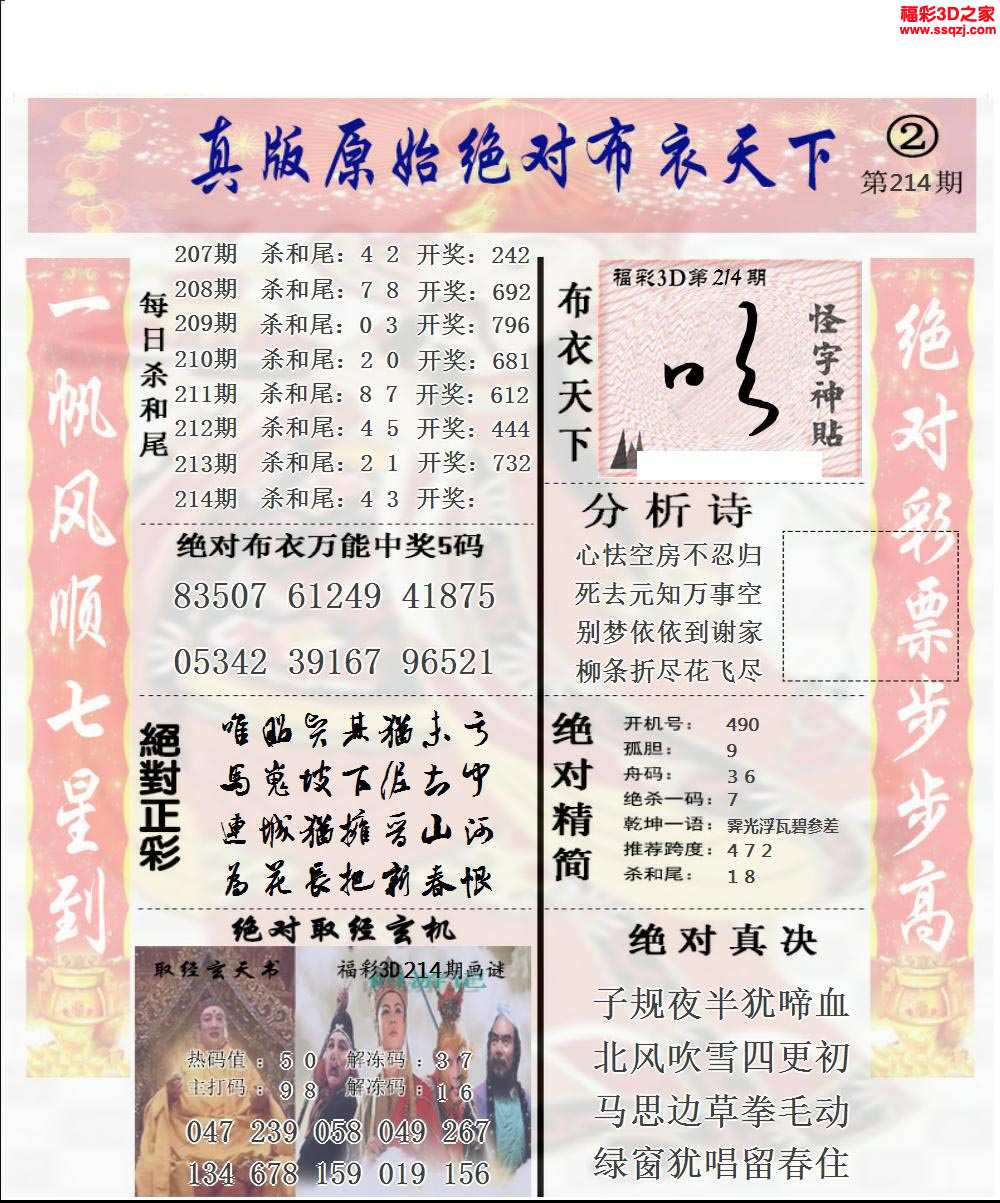 福彩3D之家
www.ssqzj.com
真版原始绝对布衣天下
②
第214期
一帆风顺七星到
每日杀和尾
207期 杀和尾：4 2 开奖：242
208期 杀和尾：7 8 开奖：692
209期 杀和尾：0 3 开奖：796
210期 杀和尾：2 0 开奖：681
211期 杀和尾：8 7 开奖：612
212期 杀和尾：4 5 开奖：444
213期 杀和尾：2 1 开奖：732
214期 杀和尾：4 3 开奖：
绝对布衣万能中奖5码
83507 61249 41875
05342 39167 96521
絕對正彩
唯昭质其猶未亏
馬嵬坡下泥土中
連城猶擁晋山河
為花長把新春恨
绝对取经玄机
取经玄天书
福彩3D214期画谜
热码值：5 0 解冻码：3 7
主打码：9 8 解冻码：1 6
047 239 058 049 267
134 678 159 019 156
布衣天下
福彩3D第214期
怪字神貼
分析诗
心怯空房不忍归
死去元知万事空
别梦依依到谢家
柳条折尽花飞尽
绝对精简
开机号：490
孤胆：9
舟码：3 6
绝杀一码：7
乾坤一语：霁光浮瓦碧参差
推荐跨度：4 7 2
杀和尾：1 8
绝对真决
子规夜半犹啼血
北风吹雪四更初
马思边草拳毛动
绿窗犹唱留春住
绝对彩票步步高